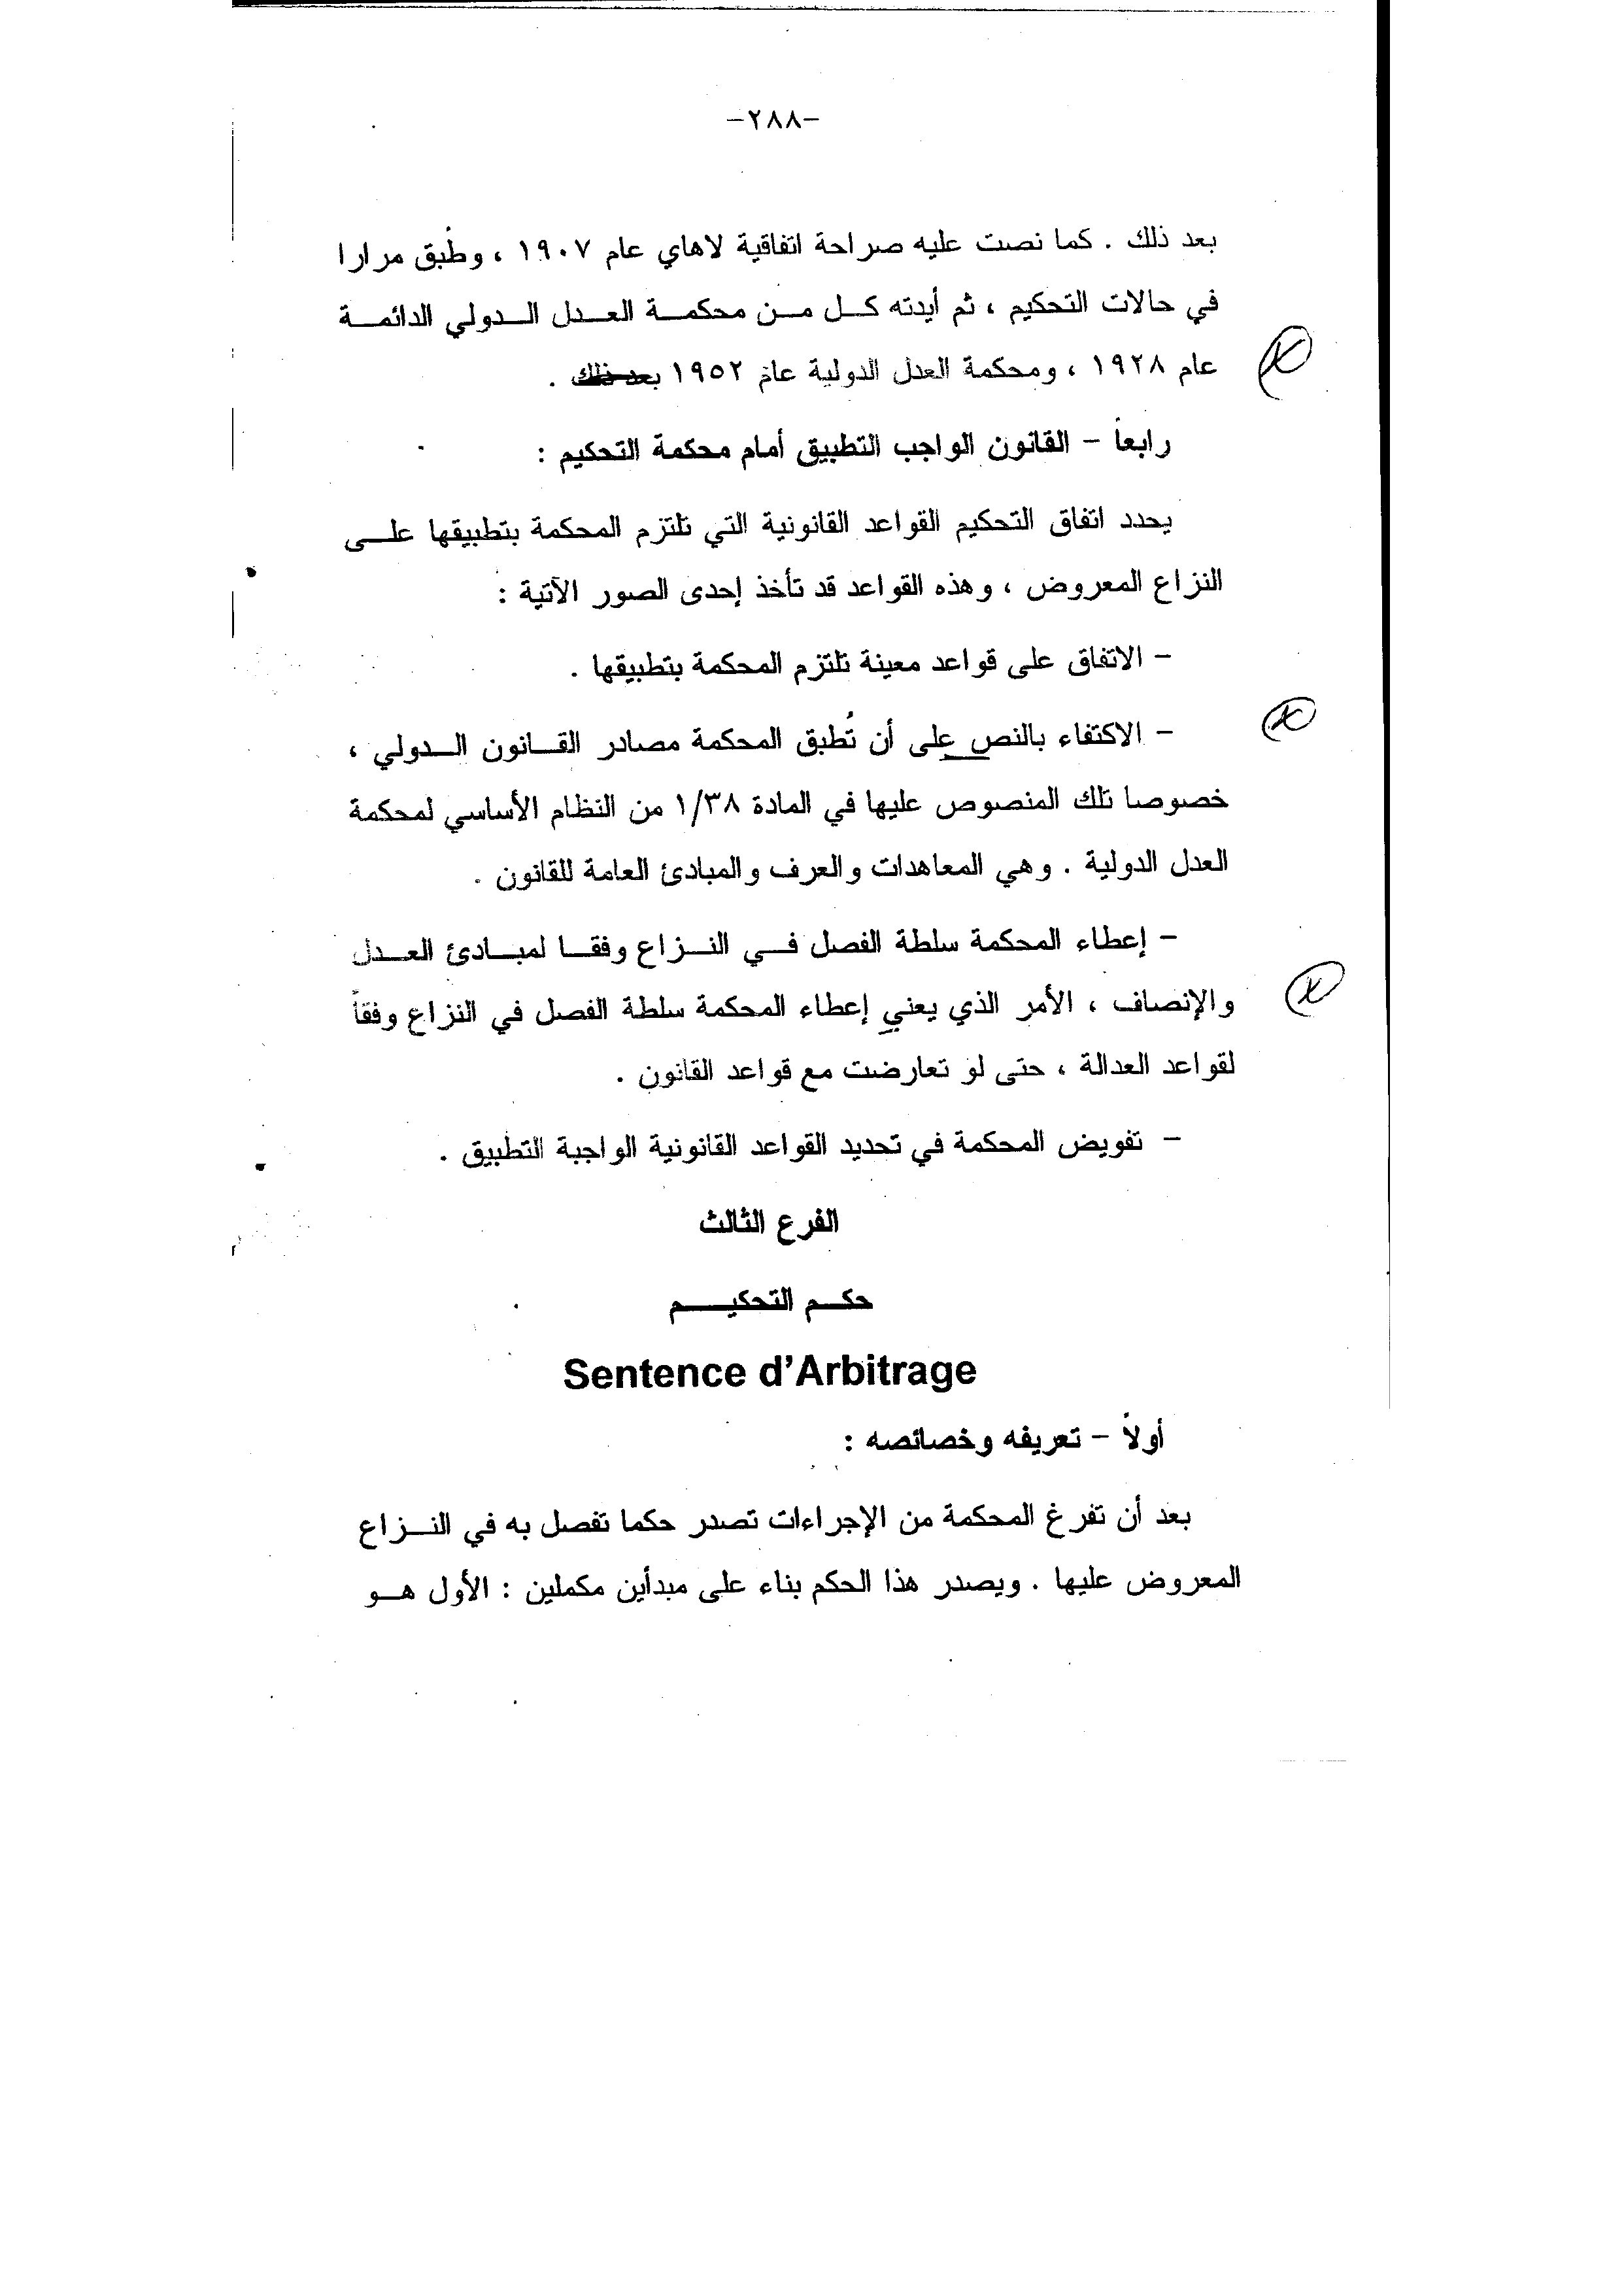 -٢٨٨-
بعد ذلك . كما نصت عليه صراحة اتفاقية لاهاي عام ١٩٠٧ ، وطُبق مرارا
في حالات التحكيم ، ثم أيدته كل من محكمة العدل الدولي الدائمة
عام ١٩٢٨ ، ومحكمة العدل الدولية عام ١٩٥٢ بعد ذلك .
رابعاً - القانون الواجب التطبيق أمام محكمة التحكيم :
يحدد اتفاق التحكيم القواعد القانونية التي تلتزم المحكمة بتطبيقها على
النزاع المعروض ، وهذه القواعد قد تأخذ إحدى الصور الآتية :
- الاتفاق على قواعد معينة تلتزم المحكمة بتطبيقها .
- الاكتفاء بالنص على أن تُطبق المحكمة مصادر القانون الدولي ،
خصوصا تلك المنصوص عليها في المادة ١/٣٨ من النظام الأساسي لمحكمة
العدل الدولية . وهي المعاهدات والعرف والمبادئ العامة للقانون .
- إعطاء المحكمة سلطة الفصل في النزاع وفقا لمبادئ العدل
والإنصاف ، الأمر الذي يعني إعطاء المحكمة سلطة الفصل في النزاع وفقاً
لقواعد العدالة ، حتى لو تعارضت مع قواعد القانون .
- تفويض المحكمة في تحديد القواعد القانونية الواجبة التطبيق .
الفرع الثالث
حكم التحكيم
Sentence d’Arbitrage
أولاً - تعريفه وخصائصه :
بعد أن تفرغ المحكمة من الإجراءات تصدر حكما تفصل به في النزاع
المعروض عليها . ويصدر هذا الحكم بناء على مبدأين مكملين : الأول هو